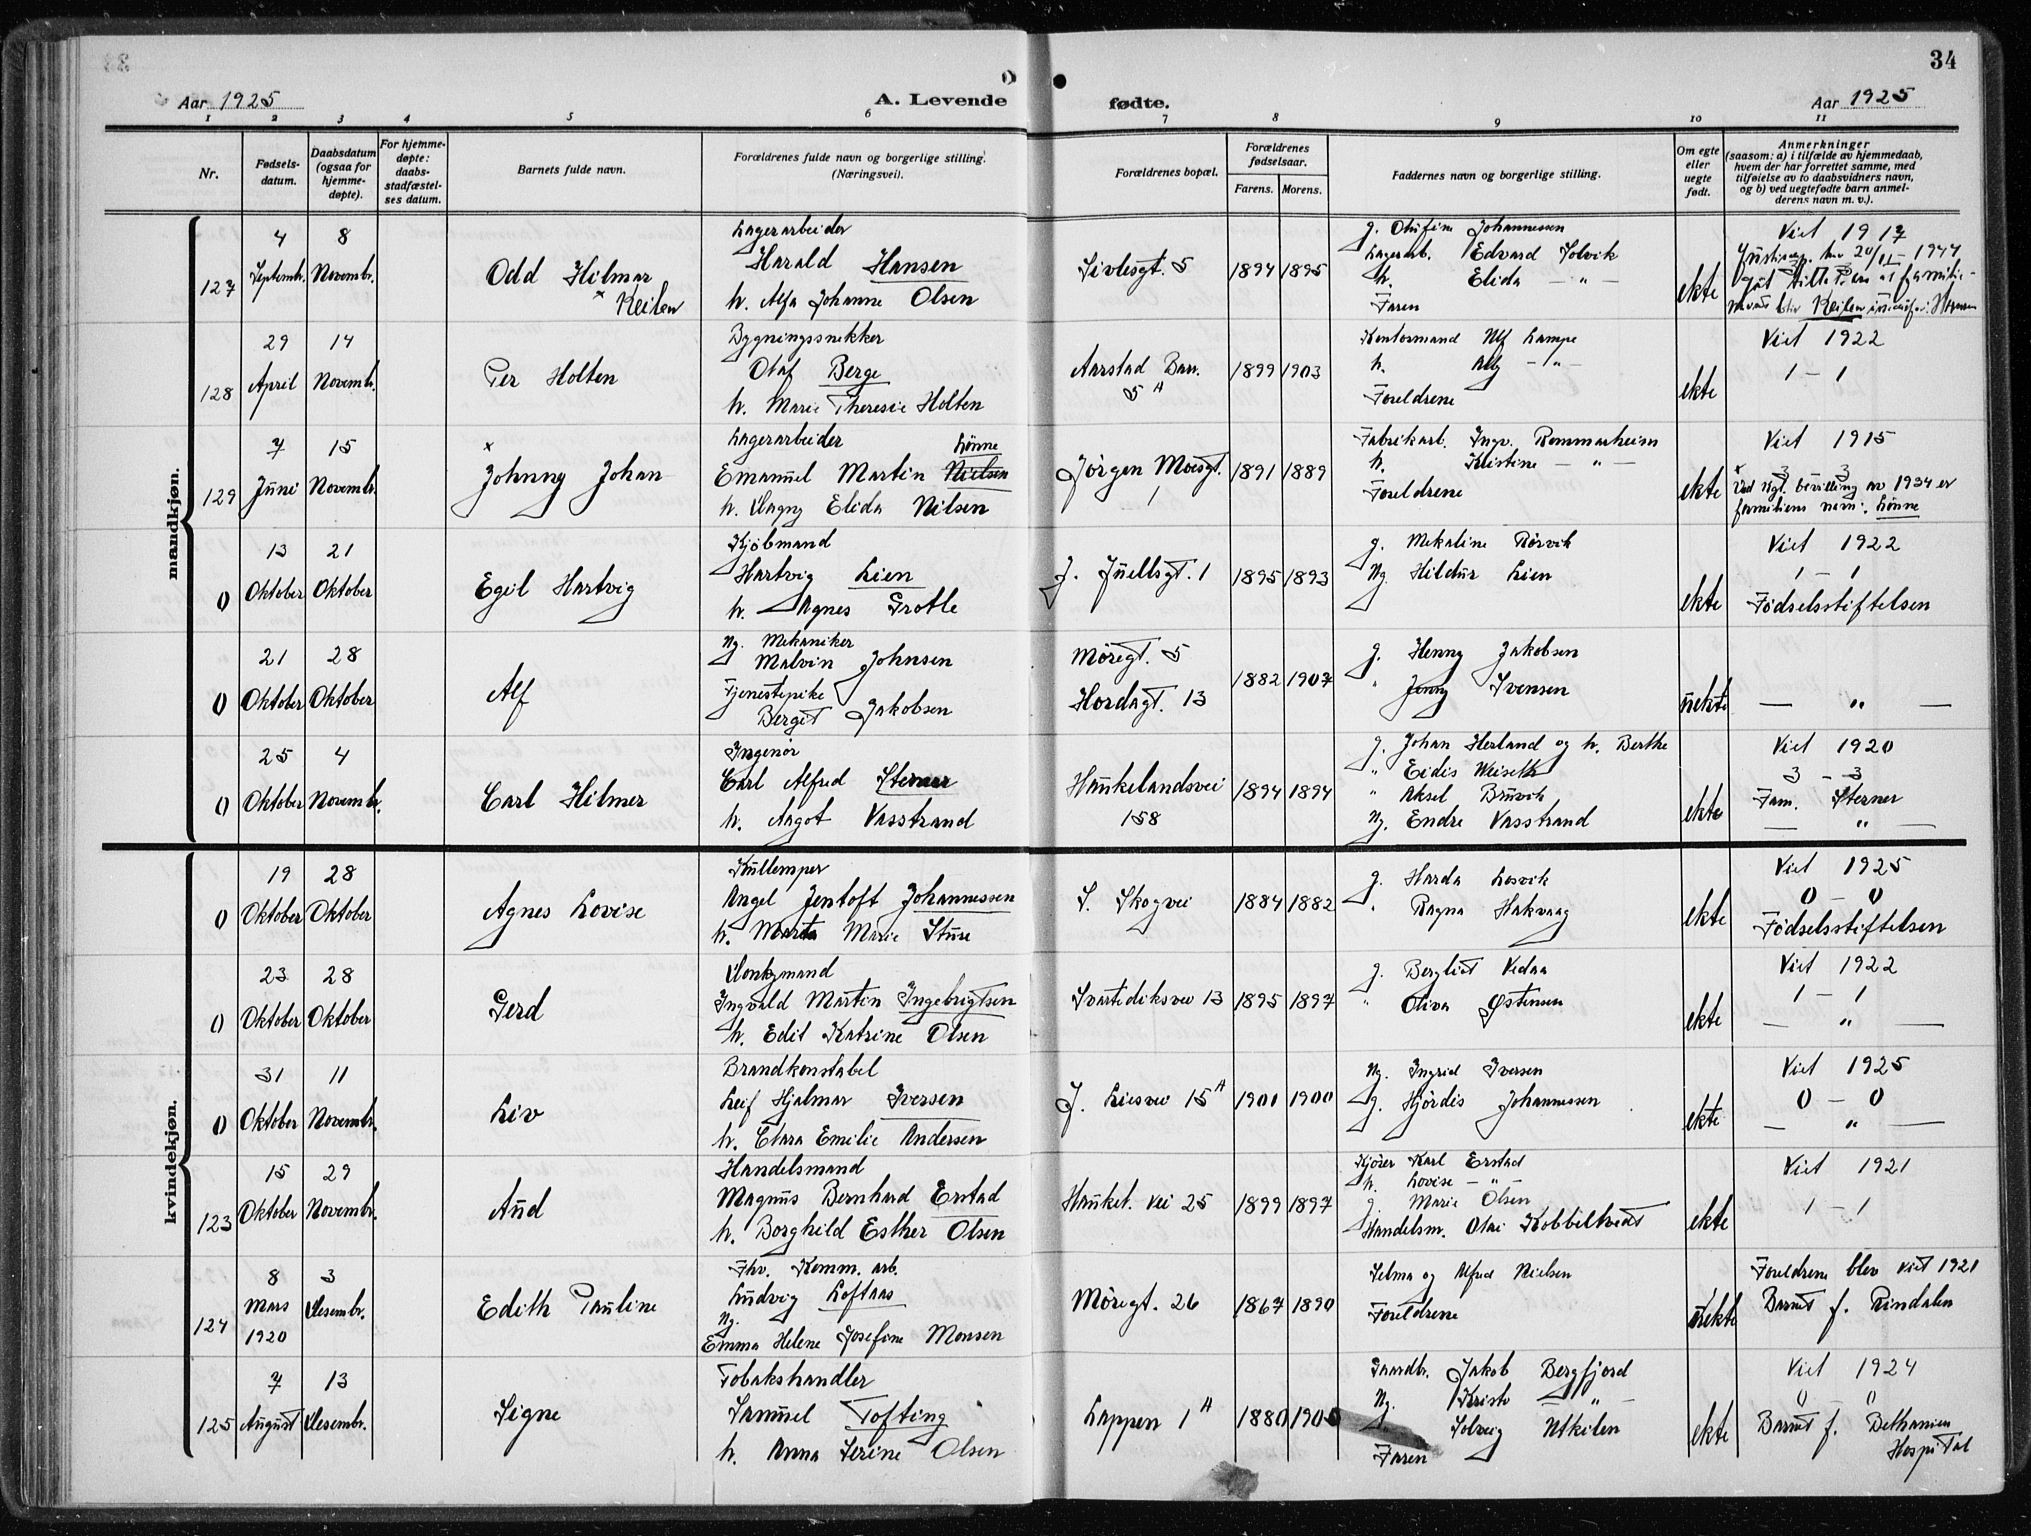 34
Aar 1925
A. Levende fødte.
Aar 1925
1 2 3 4 5 6 7 8 9 10 11
Nr.
Fødsels-
datum.
Daabsdatum
(ogsaa for
hjemme-
døpte).
For hjemme-
døpte:
daabs-
stadfæstel-
ses datum.
Barnets fulde navn.
Forældrenes fulde navn og borgerlige stilling.
(Næringsvei).
Forældrenes bopæl.
Forældrenes
fødselsaar.
Farens. Morens.
Faddernes navn og borgerlige stilling.
Om egte
eller
uegte
født.
Anmerkninger
(saasom: a) i tilfælde av hjemmedaab,
hvem der har forrettet samme, med
tilføielse av to daabsvidners navn,
og b) ved uegtefødte barn anmel-
derens navn m. v.).
mandkjøn.
127
4
Septembr.
8
Novembr.
Odd Hilmar
× Keilen
Lagerarbeider
Harald Hansen
h. Alfa Johanne Olsen
Sivlesgt. 5
1894 1895
g. Olufine Johannessen
Lagerarb. Edvard Solvik
h. Elida — " —
Faren
ekte
Viet 1917
128
29
April
14
Novembr.
Per Holten
Bygningssnikker
Olaf Berge
h. Marie Theresie Holten
Aarstad Barr.
5 A
1899 1903
Kontormand Alf Lampe
h. Ally — " —
Foreldrene
ekte
Viet 1922
1 — 1
129
7
Juni
15
Novembr.
×
Johnny Johan
Lagerarbeider Lönne
Emanuel Martin Nielsen
h. Dagny Elida Nilsen
Jörgen Moesgt.
1
1891 1889
Fabrikarb. Ingv. Rommarheim
h. Kristine — " —
Foreldrene
ekte
Viet 1915
3 3
× Ved kgl. bevilling av 1934 er
familiens navn: Lönne
0
13
Oktober
21
Oktober
Egil Hartvig
Kjöbmand
Hartvig Lien
h. Agnes Grotle
J. Juellsgt. 1
1895 1893
g. Mekaline Rörvik
Ug. Hildur Lien
ekte
Viet 1922
1 — 1
Födselsstiftelsen
0
21
Oktober
28
Oktober
Alf
Ug. Mekaniker
Malvin Johnsen
Tjenestepike
Bergit Jakobsen
Möregt. 5
Hordagt. 13
1882 1907
g. Henny Jakobsen
" Jenny Svensen
uekte
— " —
0
25
Oktober
4
Novembr.
Carl Hilmer
Ingenör
Carl Alfred Sterner
h. Aagot Vasstrand
Haukelandsvei
158
1894 1894
g. Johan Herland og h. Berthe
" Eidis Weiseth
" Aksel Bruvik
Ug. Endre Vasstrand
ekte
Viet 1920
3 — 3
Fam. Sterner
— " —
kvindekjøn.
0
19
Oktober
28
Oktober
Agnes Lovise
Kullemper
Angel Jentoft Johannessen
h. Marta Marie Sture
S. Skogvei
1884 1882
g. Harda Losvik
" Ragna Hakvaag
ekte
Viet 1925
0 — 0
Födselsstiftelsen
0
23
Oktober
28
Oktober
Gerd
Donkymand
Ingvald Martin Ingebrigtsen
h. Edit Katrine Olsen
Svartediksvei 13
1895 1897
g. Bergliot Vedaa
" Oliva Østensen
ekte
Viet 1922
1 — 1
— " —
0
31
Oktober
11
Novembr.
Liv
Brandkonstabel
Leif Hjalmar Iversen
h. Clara Emilie Andersen
J. Liesvei 15 A
1900 1900
Ug. Ingrid Iversen
g. Hjördis Johannessen
ekte
Viet 1925
0 — 0
— " —
123
15
Oktober
29
Novembr.
Aud
Handelsmand
Magnus Bernhard Erstad
h. Borghild Esther Olsen
Haukel. vei 25
1899 1897
Kjörer Karl Erstad
h. Lovise — " —
g. Marie Olsen
Handelsm. Olai Kobbiltvedt
ekte
Viet 1921
1 — 1
124
8
Mars
1920
3
Desembr.
Edith Pauline
Fhv. Komm. arb.
Ludvig Loftaas
Ug.
Emma Helene Josefine Monsen
Möregt. 26
1867 1890
Selma og Alfred Nielsen
Foreldrene
uekte
Foreldrene blev viet 1921
Barnet f. Rindalen
125
7
August
13
Desembr.
Signe
Tobakshandler
Samuel Tofting
h. Anna Serine Olsen
Lappen 1 A
1880 1905
Gaardbr. Jakob Bergfjord
Ug. Kristo — " —
Solveig Utkilen
Faren
ekte
Viet 1924
0 — 0
Barnet f. Bethanien
Hospital